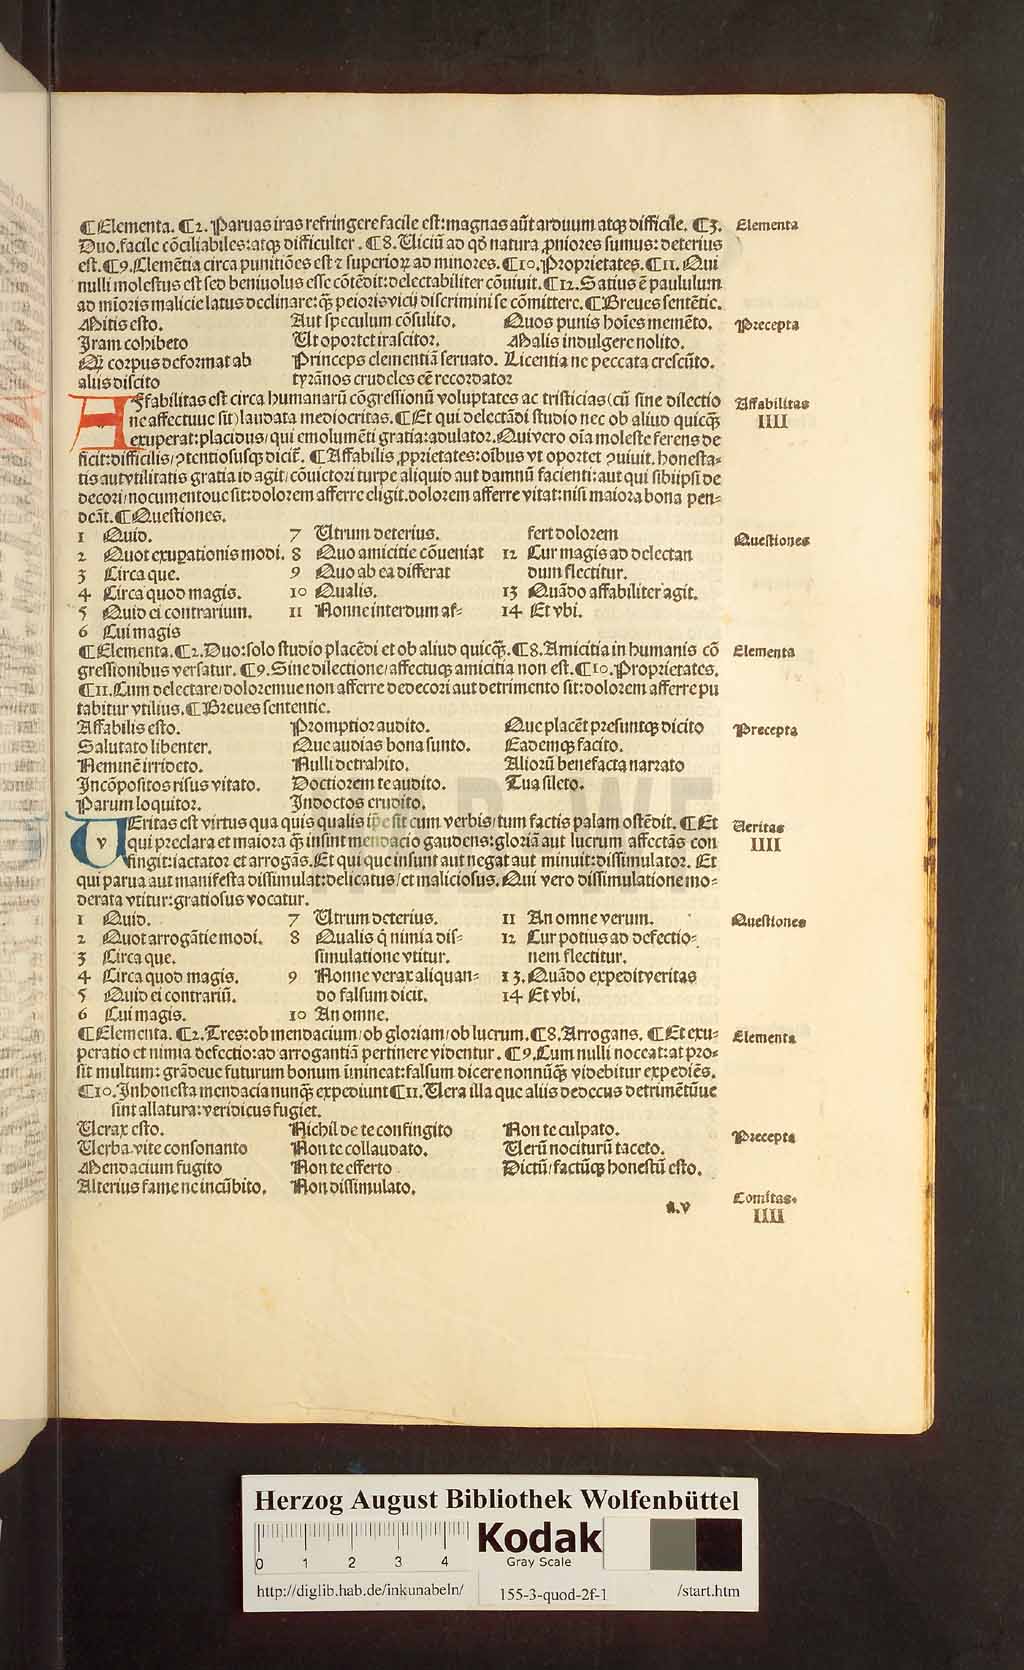 ¶Elementa. ¶2. Paruas iras refringere facile est: magnas aūt arduum atqꝫ difficile. ¶3.
Duo. facile cōciliabiles: atqꝫ difficulter. ¶8. Uiciū ad qđ natura ꝓniores sumus: deterius
est. ¶9. Clemētia circa punitiōes est ⁊ superioꝝ ad minores. ¶10. Proprietates. ¶11. Qui
nulli molestus est sed beniuolus esse cōtēdit: delectabiliter cōuiuit. ¶12. Satius ē paululum
ad mīoris malicie latus declinare: qꝫ̄ peioris vicij discrimini se cōmittere. ¶Breues sentētie.
Elementa
Mitis esto.
Iram cohibeto
Qꝫ corpus deformat ab
aliis discito
Aut speculum cōsulito.
Ut oportet irascitor.
Princeps clementiā seruato.
tyrānos crudeles eē recordator
Quos punis hoīes memēto.
Malis indulgere nolito.
Licentia ne peccata crescūto.
Precepta
Affabilitas est circa humanarū cōgressionū voluptates ac tristicias (cū sine dilectio
ne affectuue sit) laudata mediocritas. ¶Et qui delectādi studio nec ob aliud quicqꝫ̄
exuperat: placidus/ qui emolumēti gratia: adulator. Qui vero oīa moleste ferens de
ficit: difficilis/ ꝯtentiosusqꝫ dicit̄. ¶Affabilis ꝓprietates: oībus vt oportet ꝯuiuit. honesta-
tis aut vtilitatis gratia id agit/ cōuictori turpe aliquid aut damnū facienti: aut qui sibiipsi de
decori/ nocumentoue sit: dolorem afferre eligit. dolorem afferre vitat: nisi maiora bona pen-
deāt. ¶Questiones.
Affabilitas
IIII
1 Quid.
2 Quot exuꝑationis modi.
3 Circa que.
4 Circa quod magis.
5 Quid ei contrarium.
6 Cui magis
7 Utrum deterius.
8 Quo amicitie cōueniat
9 Quo ab ea differat
10 Qualis.
11 Nonne interdum af-
fert dolorem
12 Cur magis ad delectan
dum flectitur.
13 Quādo affabiliter agit.
14 Et vbi.
Questiones
¶Elementa. ¶2. Duo: solo studio placēdi et ob aliud quicqꝫ̄. ¶8. Amicitia in humanis cō
gressionibus versatur. ¶9. Sine dilectione/ affectuqꝫ amicitia non est. ¶10. Proprietates.
¶11. Cum delectare/ doloremue non afferre dedecori aut detrimento sit: dolorem afferre pu
tabitur vtilius. ¶Breues sententie.
Elementa
Affabilis esto.
Salutato libenter.
Neminē irrideto.
Incōpositos risus vitato.
Parum loquitor.
Promptior audito.
Que audias bona sunto.
Nulli detrahito.
Doctiorem te audito.
Indoctos erudito.
Que placēt presuntqꝫ dicito
Eademqꝫ facito.
Aliorū benefacta narrato
Tua sileto.
Precepta
UEritas est virtus qua quis qualis ip̄e sit cum verbis/ tum factis palam ostēdit. ¶Et
qui preclara et maiora qꝫ̄ insint mendacio gaudens: gloriā aut lucrum affectās con
fingit: iactator et arrogās. Et qui que insunt aut negat aut minuit: dissimulator. Et
qui parua aut manifesta dissimulat: delicatus/ et maliciosus. Qui vero dissimulatione mo-
derata vtitur: gratiosus vocatur.
Ueritas
IIII
1 Quid.
2 Quot arrogātie modi.
3 Circa que.
4 Circa quod magis.
5 Quid ei contrariū.
6 Cui magis.
7 Utrum deterius.
8 Qualis q̄ nimia dis-
simulatione vtitur.
9 Nonne verax aliquan-
do falsum dicit.
10 An omne.
11 An omne verum.
12 Cur potius ad defectio-
nem flectitur.
13. Quādo expedit veritas
14 Et vbi.
Questiones
¶Elementa. ¶2. Tres: ob mendacium/ ob gloriam/ ob lucrum. ¶8. Arrogans. ¶Et exu-
peratio et nimia defectio: ad arrogantiā pertinere videntur. ¶9. Cum nulli noceat: at pro-
sit multum: grādeue futurum bonum īmineat: falsum dicere nonnūqꝫ̄ videbitur expediēs.
¶10. Inhonesta mendacia nunqꝫ̄ expediunt ¶11. Uera illa que aliis dedecus detrimētūue
sint allatura: veridicus fugiet.
Elementa
Uerax esto.
Uerba vite consonanto
Mendacium fugito
Alterius fame ne incūbito.
Nichil de te confingito
Non te collaudato.
Non te efferto
Non dissimulato.
Non te culpato.
Uerū nociturū taceto.
Dictū/ factūqꝫ honestū esto.
Precepta
a.v
Comitas.
IIII
Herzog August Bibliothek Wolfenbüttel
0 1 2 3 4
Kodak
Gray Scale
http://diglib.hab.de/inkunabeln/
155-3-quod-2f-1
/start.htm